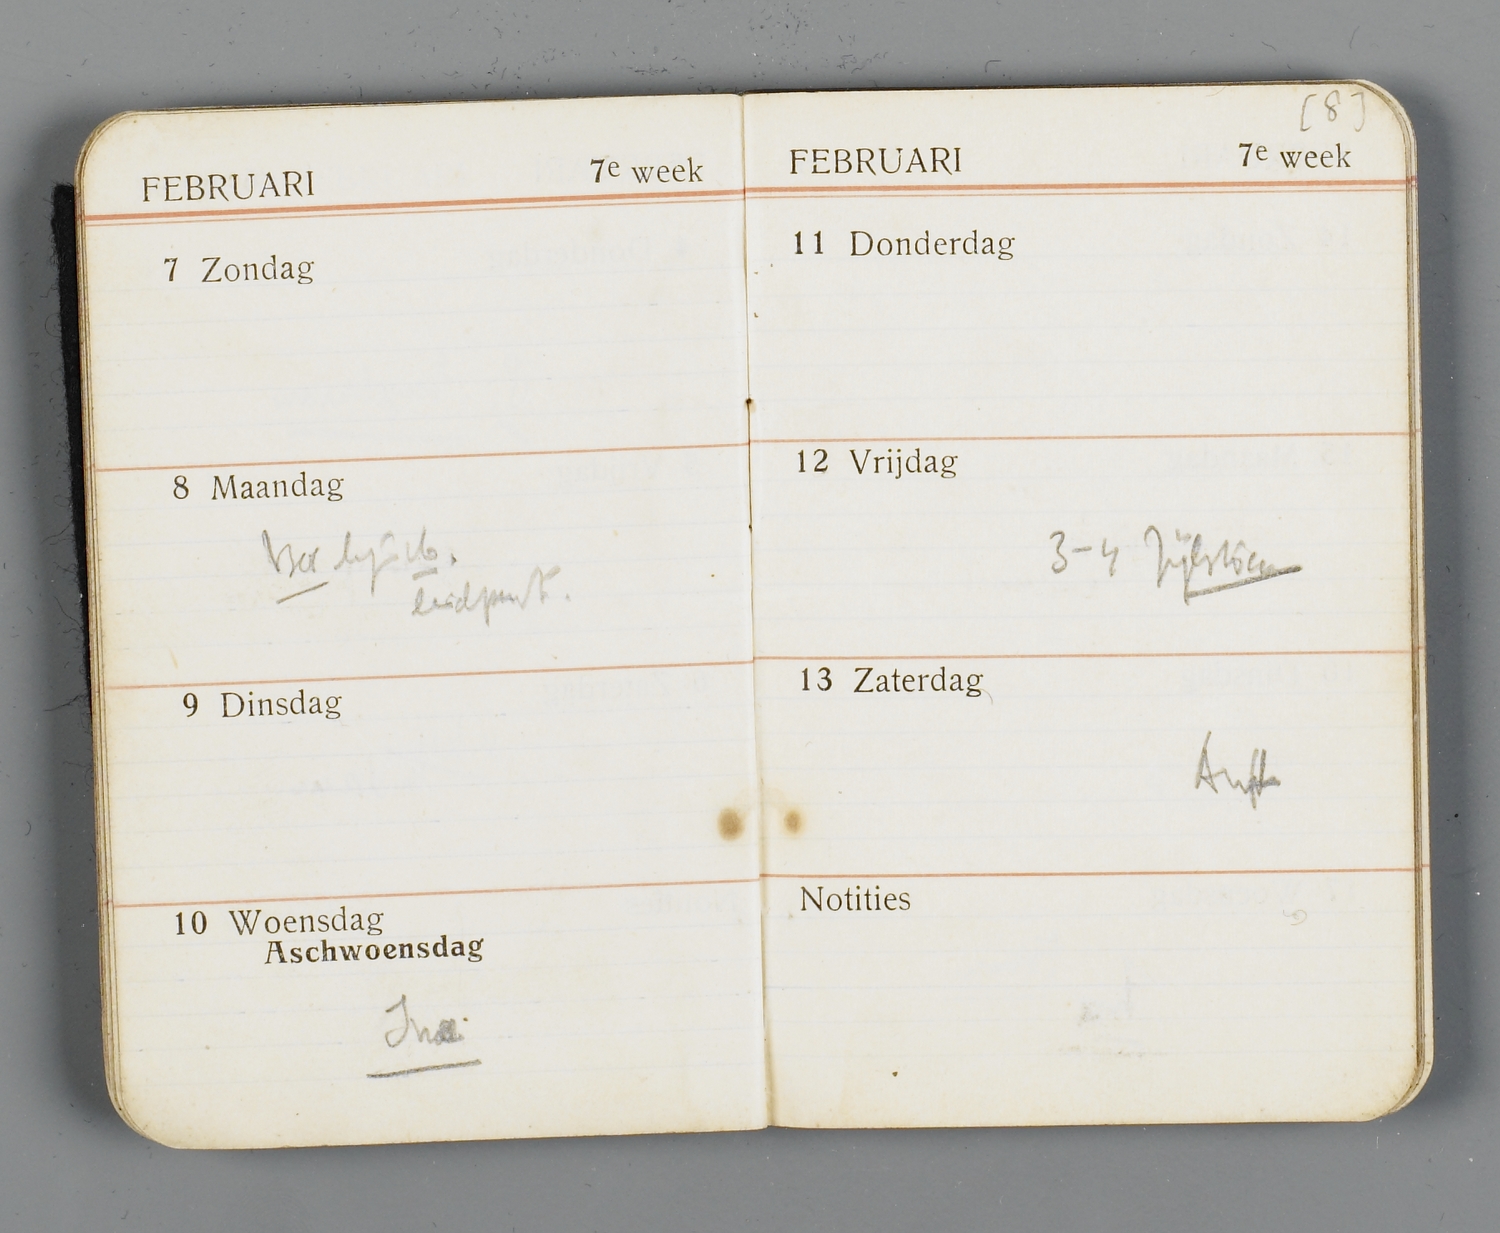 FEBRUARI 7e week
7 Zondag
8 Maandag
9 Dinsdag
10 Woensdag
Aschwoensdag
[8]
FEBRUARI 7e week
11 Donderdag
12 Vrijdag
3-4
13 Zaterdag
Notities